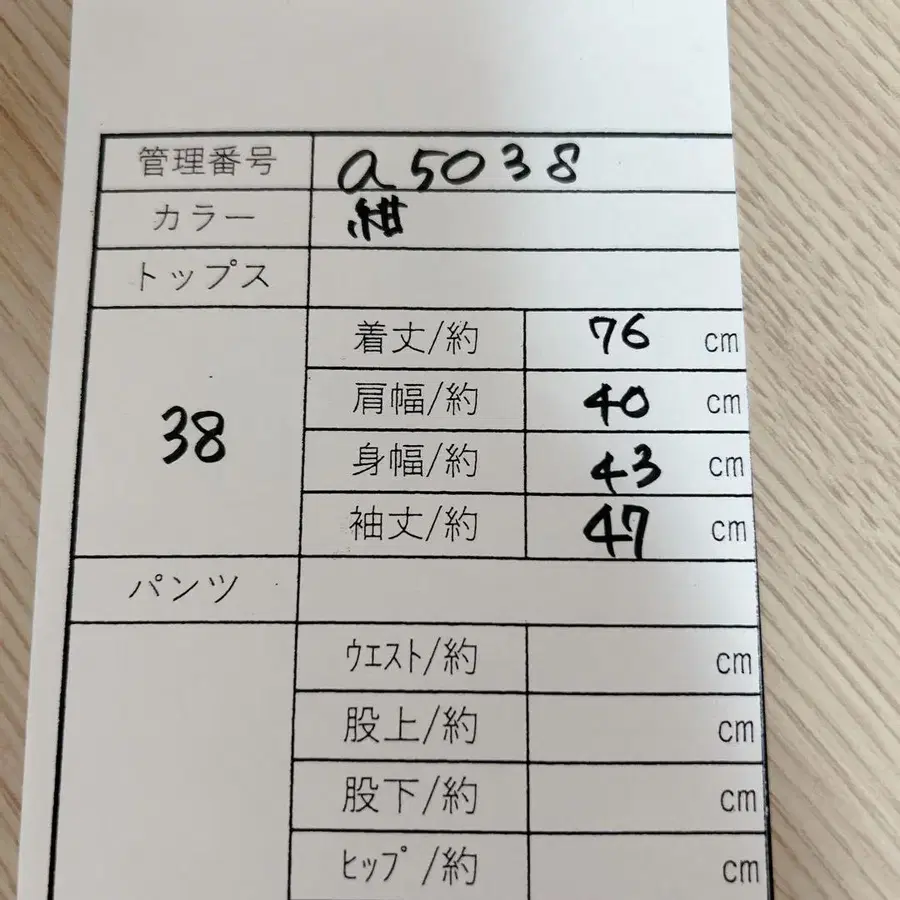 管理番号 a5038
カラー 紺
トップス
38
着丈/約 76 cm
肩幅/約 40 cm
身幅/約 43 cm
袖丈/約 47 cm
パンツ
ｳｴｽﾄ/約 cm
股上/約 cm
股下/約 cm
ﾋｯﾌﾟ/約 cm